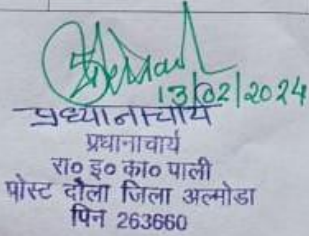 13/02/2024
प्रध्यानाचार्य
प्रधानाचार्य
रा० इ० का० पाली
पोस्ट दौला जिला अल्मोडा
पिन 263660